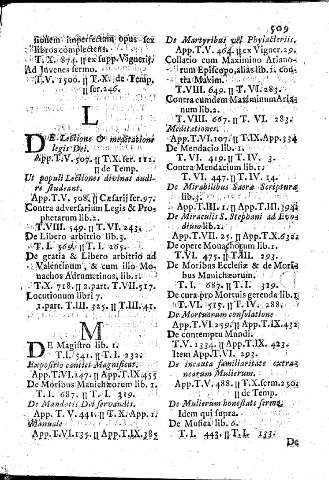 509
stionem imperfectam opus sex
libros complectens.
T. X. 874. || ex supp. Vignerii.
Ad Juvenes sermo.
T. V. 1500. || T. X. de Temp.
|| ser. 246.
L
DE Lectione & meditatione
legis Dei.
App. T. V. 507. || T. X. ser. 112.
|| de Temp.
Ut populi Lectiones divinas audire
studeant.
App. T. V. 508. || Cæsarii ser. 97.
Contra adversarium Legis & Prophetarum
lib. 2.
T. VIII. 549. || T. VI. 243.
De Libero arbitrio lib. 3.
T. I. 569. || T. I. 265.
De gratia & Libero arbitrio ad
Valentinum, & cum illo Monachos
Adrumetinos, lib. 1.
T. X. 718. || 2. part. T. VII. 517.
Locutionum libri 7.
1. part. T. III. 325. || T. III. 41.
M
DE Magistro lib. 1.
T. I. 541. || T. I. 232.
Expositio cantici Magnificat.
App. T. VI. 247. || App. T. IX. 455
De Moribus Manichæorum lib. 1.
T. I. 687. || T. I. 319.
De Mandatis Dei servandis.
App. T. V. 441. || T. X. App. 1.
Manuale
App. T. VI. 135. || App. T. IX. 385
De Martyribus vel Phylacteriis.
App. T. V. 464. || ex Vigner. 29.
Collatio cum Maximino Arianorum
Episcopo, alias lib. 1. contra
Maxim.
T. VIII. 649. || T. VI. 283.
Contra eumdem Maximinum Arianum
lib. 2.
T. VIII. 667. || T. VI. 283.
Meditationes.
App. T. VI. 107. || T. IX. App. 334
De Mendacio lib. 1.
T. VI. 419. || T. IV. 3.
Contra Mendacium lib. 1.
T. VI. 447. || T. IV. 14.
De Mirabilibus Sacræ Scripturæ
lib. 3.
App. T. III. 1. || App. T. III. 394.
De Miraculis S. Stephani ad Evodium
lib. 2.
App. T. VII. 25. || App. T. X. 630.
De opere Monachorum lib. 1.
T. VI. 475. || T. III. 293.
De Moribus Ecclesiæ & de Moribus
Manichæorum.
T. I. 687. || T. I. 319.
De cura pro Mortuis gerenda lib. 1.
T. VI. 515. || T. IV. 288.
De Mortuorum consolatione
App. T. VI. 259. || App. T. IX. 432
De contemptu Mundi.
T. V. 1334. || App. T. IX. 423.
Item App. T. VI. 293.
De incauta familiaritate extranearum
Mulierum.
App. T. V. 488. || T. X. serm. 250.
|| de Temp.
De Mulierum honestate sermo.
Idem qui supra.
De Musica lib. 6.
T. I. 443. || T. I. 133.
De